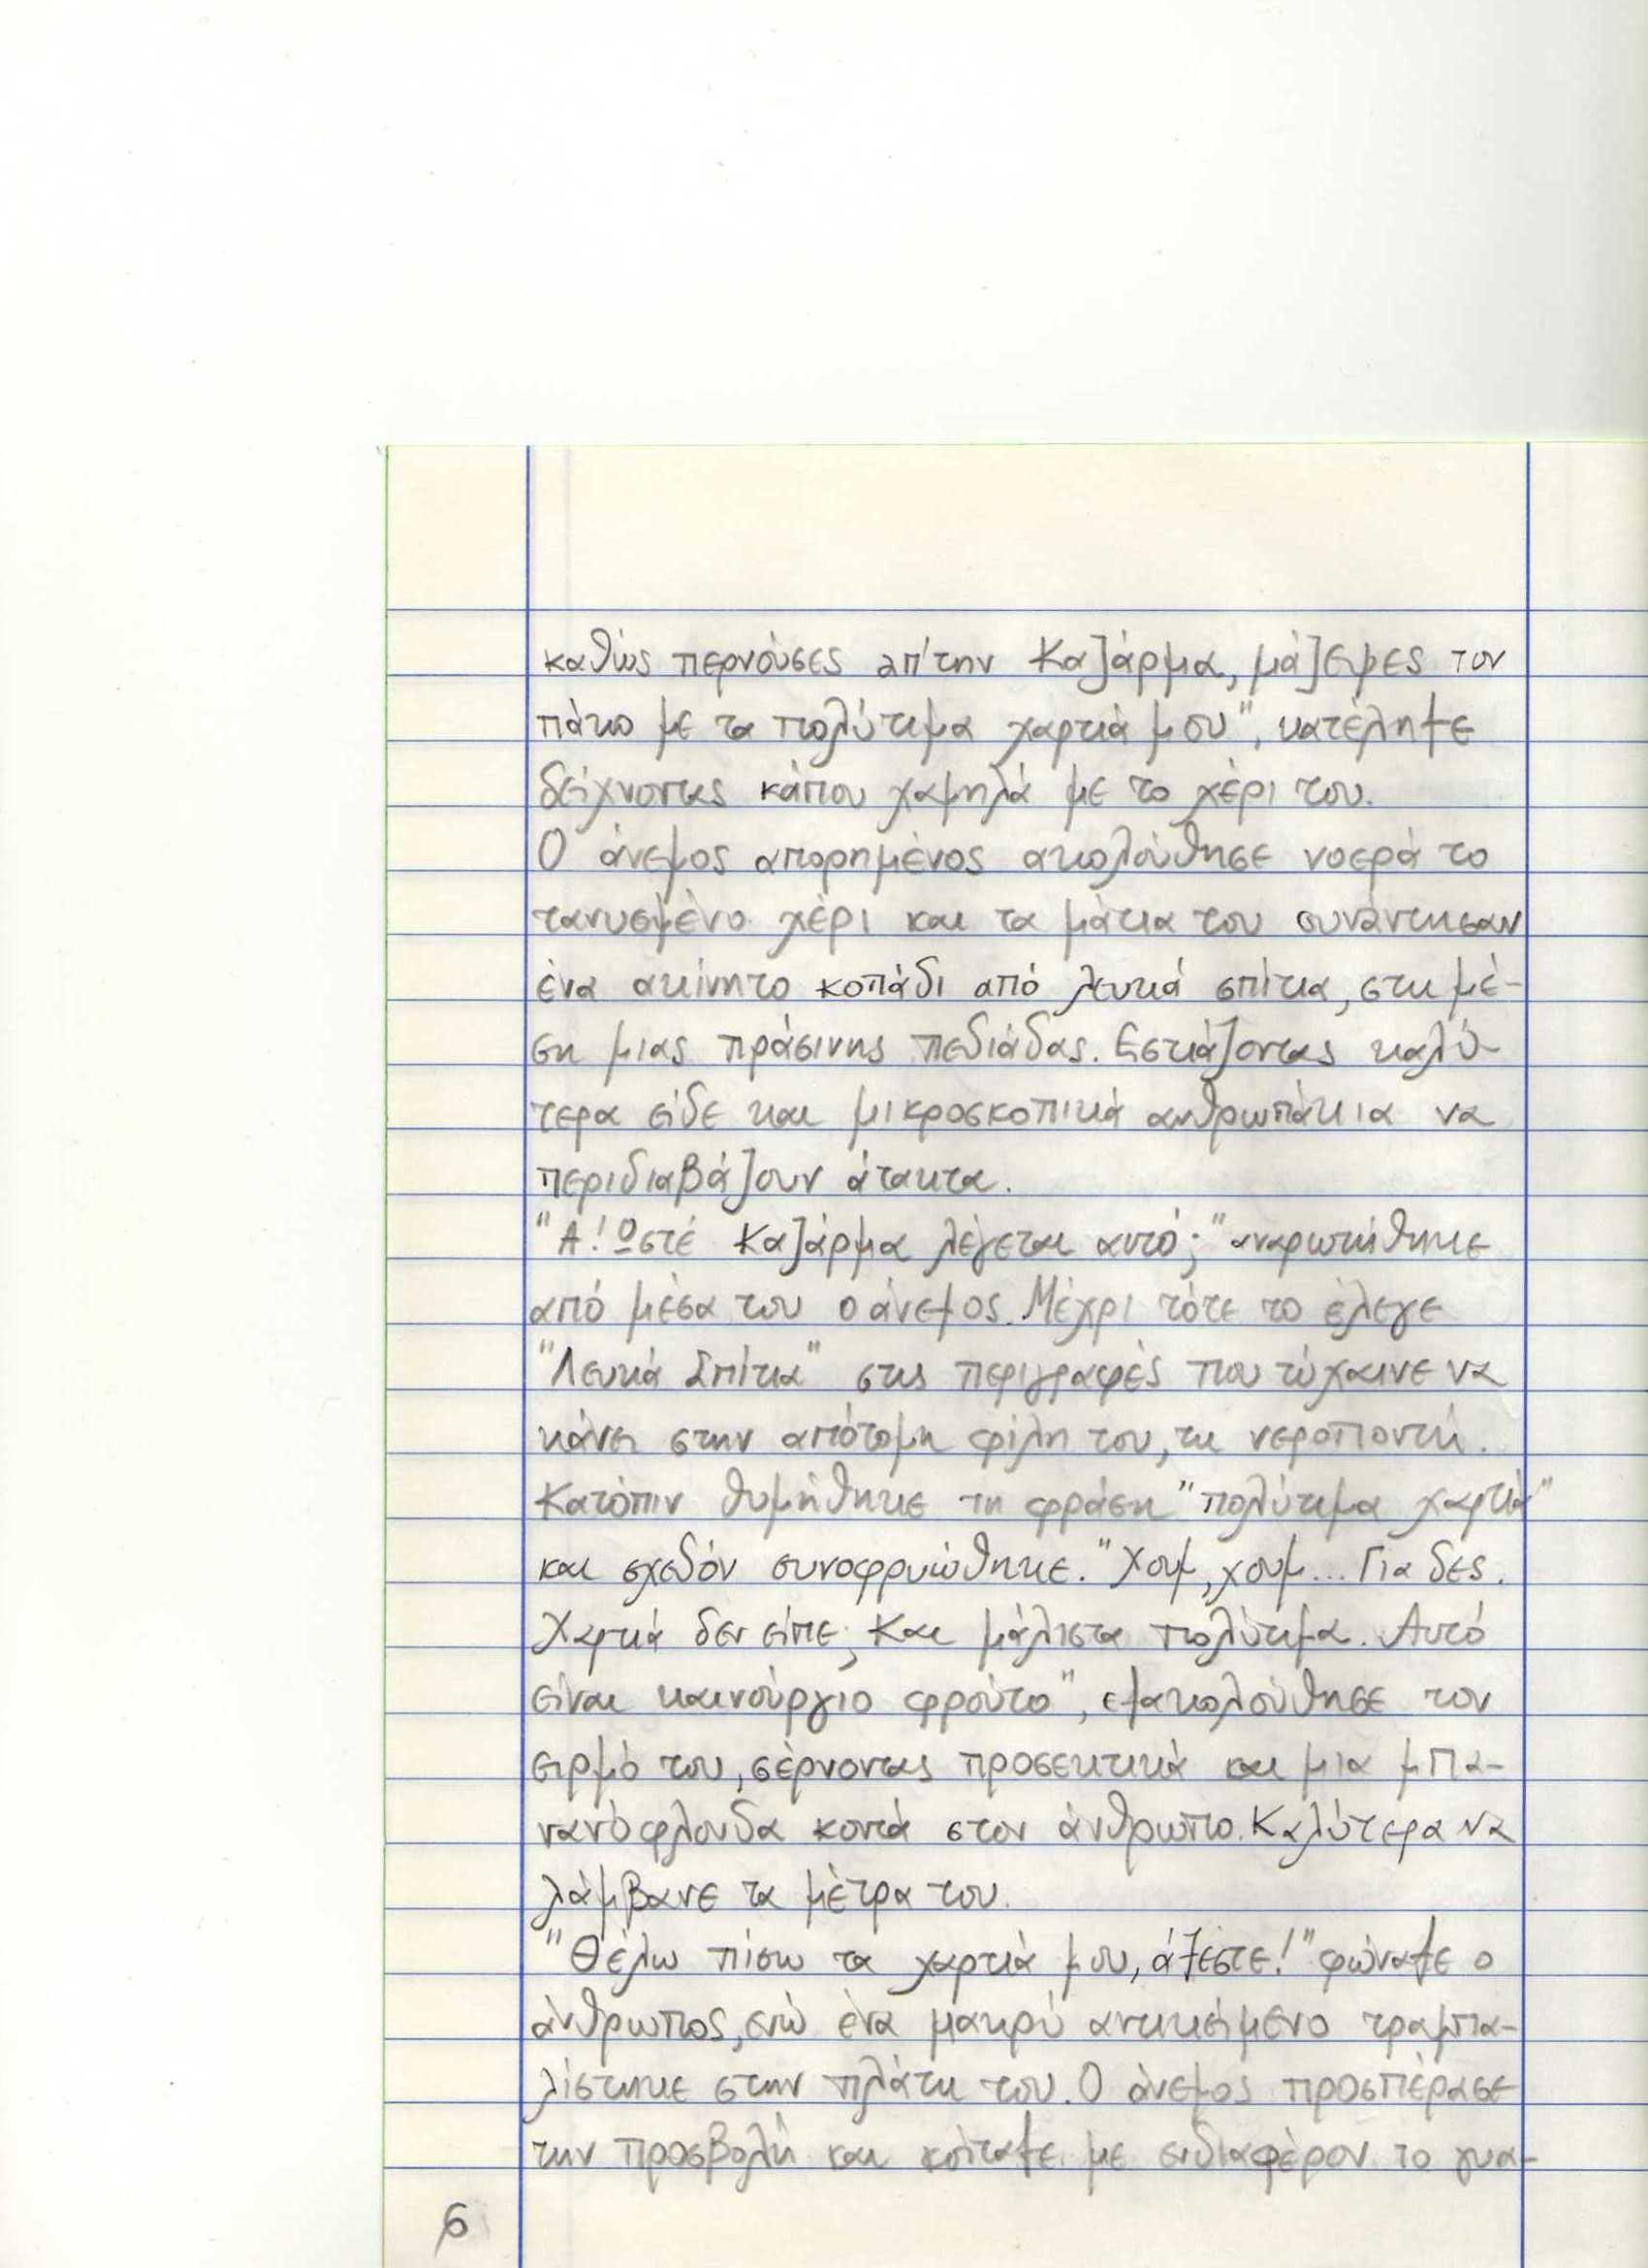 καθώς περνούσες απ'την Καζάρμα, μάζεψες τον
πάκο με τα πολύτιμα χαρτιά μου", κατέληξε
δείχνοντας κάπου χαμηλά με το χέρι του.
Ο άνεμος απορημένος ακολούθησε νοερά το
τανυσμένο χέρι και τα μάτια του συνάντησαν
ένα ακίνητο κοπάδι από λευκά σπίτια, στη μέ-
ση μιας πράσινης πεδιάδας. Εστιάζοντας καλύ-
τερα είδε και μικροσκοπικά ανθρωπάκια να
περιδιαβάζουν άτακτα.
"Α! Ωστέ Καζάρμα λέγεται αυτό;" αναρωτήθηκε
από μέσα του ο άνεμος. Μέχρι τότε το έλεγε
"Λευκά Σπίτια" στις περιγραφές που τύχαινε να
κάνει στην απότομη φίλη του, τη νεροποντή.
Κατόπιν θυμήθηκε τη φράση "πολύτιμα χαρτιά"
και σχεδόν συνοφρυώθηκε. "Χουμ, χουμ... Για δες.
Χαρτιά δεν είπε; Και μάλιστα πολύτιμα. Αυτό
είναι καινούργιο φρούτο", εξακολούθησε τον
ειρμό του, σέρνοντας προσεκτικά και μια μπα-
νανόφλουδα κοντά στον άνθρωπο. Καλύτερα να
λάμβανε τα μέτρα του.
"Θέλω πίσω τα χαρτιά μου, άξεστε!" φώναξε ο
άνθρωπος, ενώ ένα μακρύ αντικείμενο τραμπα-
λίστηκε στην πλάτη του. Ο άνεμος προσπέρασε
την προσβολή και κοίταξε με ενδιαφέρον το γυα-
6